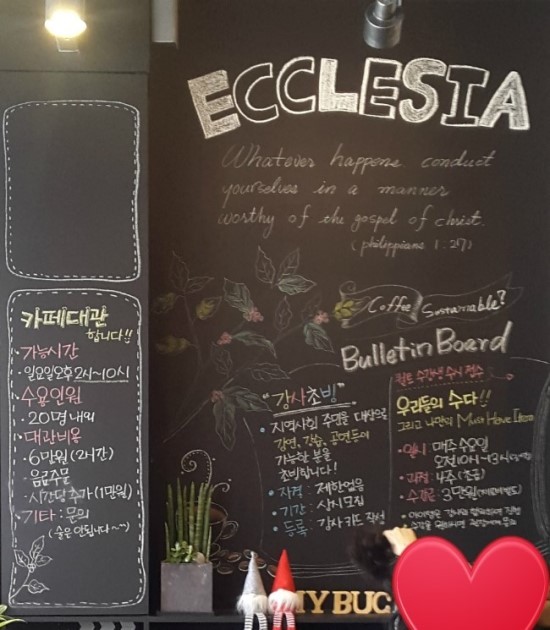 ECCLESIA
Whatever happens. conduct
yourselves in a manner
worthy of the gospel of christ.
(philippians 1:27)
카페대관
합니다!!
· 가능시간
· 일요일오후2시~10시
수용인원
· 20명 내외
· 대관비용
· 6만원(2시간)
· 음료주문
· 시간당 추가(1만원)
· 기타:문의
(술은 안됩니다~~)
Coffee Sustainable?
Bulletin Board
"강사초빙"
· 지역사회 주민을 대상으로
강연, 강습, 공연등이
가능한 분을
초빙합니다!
· 자격 : 제한없음
· 기간 : 상시모집
· 등록 : 강사카드 작성
수강생 수시 접수
우리들의 수다!!
그리고 나만의 Must Have Item
· 일시: 매주수요일
오전10시~
4주(초급)
· 수강료: 3만원
MY BUC